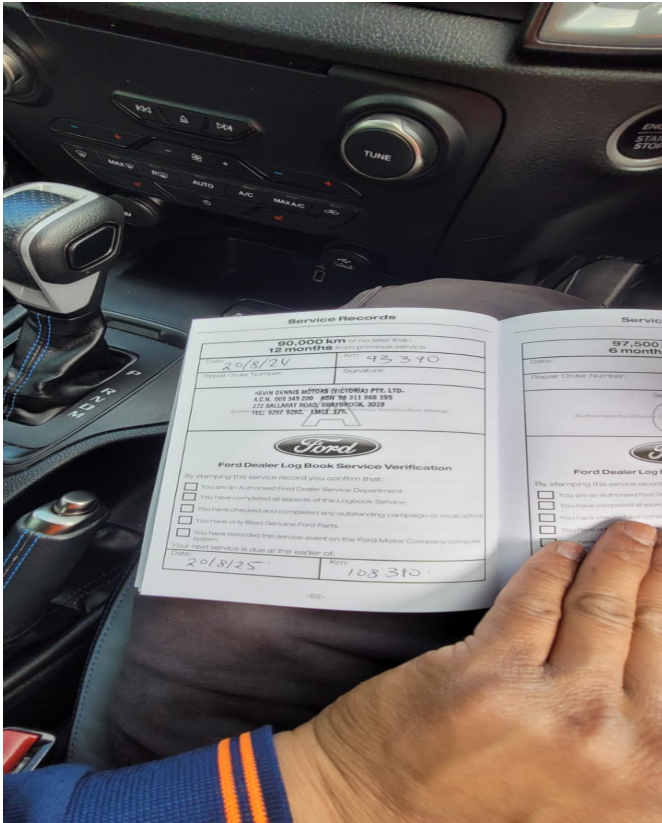 TUNE
MAX
R
AUTO
A/C
MAX A/C
P
R
N
D
M
Service Records
90,000 km or no later than
12 months from previous service
Date:
20/8/24
Km:
93 390
Repair Order Number:
Signature:
KEVIN DENNIS MOTORS (VICTORIA) PTY. LTD.
A.C.N. 005 345 200 ABN 98 311 968 195
272 BALLARAT ROAD, BRAYBROOK, 3019
TEL: 9292 9292. LMCT 175.
Ford
Ford Dealer Log Book Service Verification
By stamping this service record you confirm that:
You are an Authorised Ford Dealer Service Department.
You have completed all aspects of the Logbook Service.
You have checked and completed any outstanding campaign or recall actions
You have only fitted Genuine Ford Parts.
You have recorded this service event on the Ford Motor Company computer
system
Your next service is due at the earlier of:
Date:
20/8/25
Km:
108 310
-62-
97,500
Date:
Repair Order Number:
Ford
Ford Dealer Log
By stamping this service record
You are an Authorised Ford D
You have completed all aspec